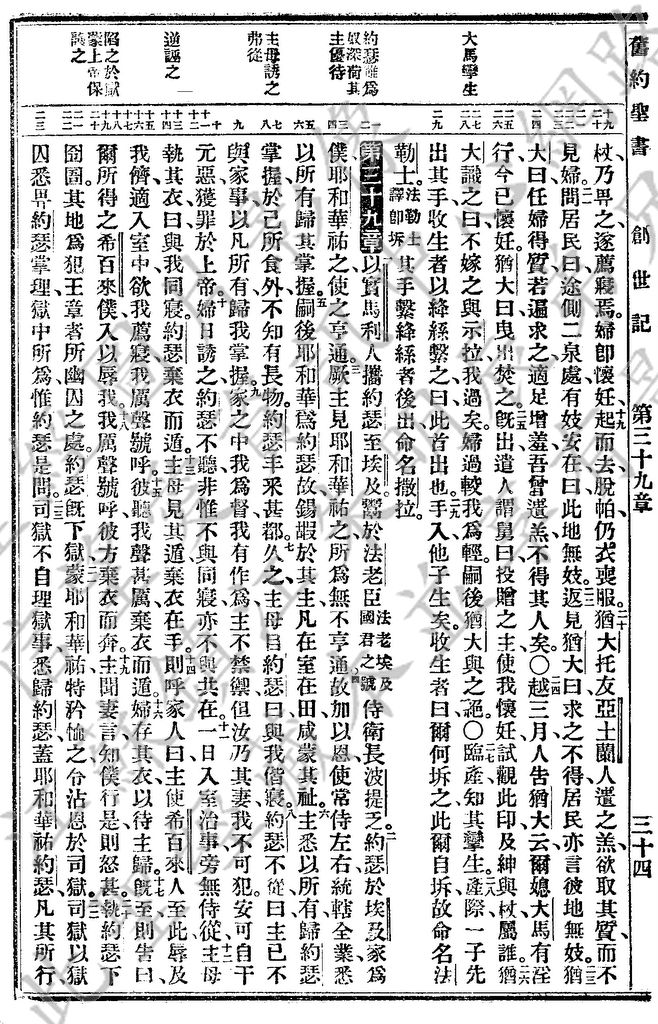 舊約聖書 創世記 第三十九章 三十四
大馬孿生
約瑟雖為奴深荷其主優待
主母誘之弗從
逆誣之
陷之於獄蒙上帝保護之
杖乃畀之遂薦寢焉婦卽懷妊起而去脫帕仍衣喪服猶大托友亞土蘭人遣之羔欲取其質而不
見婦問居民曰途側二泉處有妓安在曰此地無妓返見猶大曰求之不得居民亦言彼地無妓猶
大曰任婦得質若遍求之適足增羞吾曾遺羔不得其人矣〇越三月人告猶大云爾媳大馬有淫
行今已懷妊猶大曰曳出焚之旣出遣人謂舅曰投贈之主使我懷妊試觀此印及紳與杖屬誰猶
大識之曰不嫁之與示拉我過矣婦過較我爲輕嗣後猶大與之絕〇臨產知其孿生產際一子先
出其手收生者以絳絲繫之曰此首出也手入他子生矣收生者曰爾何坼之此爾自坼故命名法
勒士法勒士譯卽坼其手繫絳絲者後出命名撒拉
第三十九章以實馬利人攜約瑟至埃及鬻於法老臣法老埃及國君之號侍衛長波提乏約瑟於埃及家爲
僕耶和華祐之使之亨通厥主見耶和華祐之所爲無不亨通故加以恩使常侍左右統轄全業悉
以所有歸其掌握嗣後耶和華爲約瑟故錫嘏於其主凡在室在田咸蒙其祉主悉以所有歸約瑟
掌握於己所食外不知有長物約瑟丰采甚都久之主母目約瑟曰與我偕寢約瑟不從曰主已不
與家事以凡所有歸我掌握家之中我爲督我有作爲主不禁禦但汝乃其妻我不可犯安可自干
元惡獲罪於上帝婦日誘之約瑟不聽非惟不與同寢亦不與共在一日入室治事旁無侍從主母
執其衣曰與我同寢約瑟棄衣而遁主母見其遁棄衣在手則呼家人曰主使希百來人至此辱及
我儕適入室中欲我薦寢我厲聲號呼彼聽我聲甚厲棄衣而遁婦存其衣以待主歸旣至則告曰
爾所得之希百來僕入以辱我我厲聲號呼彼方棄衣而奔主聞妻言知僕行是則怒甚執約瑟下
囹圄其地爲犯王章者所幽囚之處約瑟旣下獄蒙耶和華祐特矜恤之令沾恩於司獄司獄以獄
囚悉畀約瑟掌理獄中所爲惟約瑟是問司獄不自理獄事悉歸約瑟蓋耶和華祐約瑟凡其所行